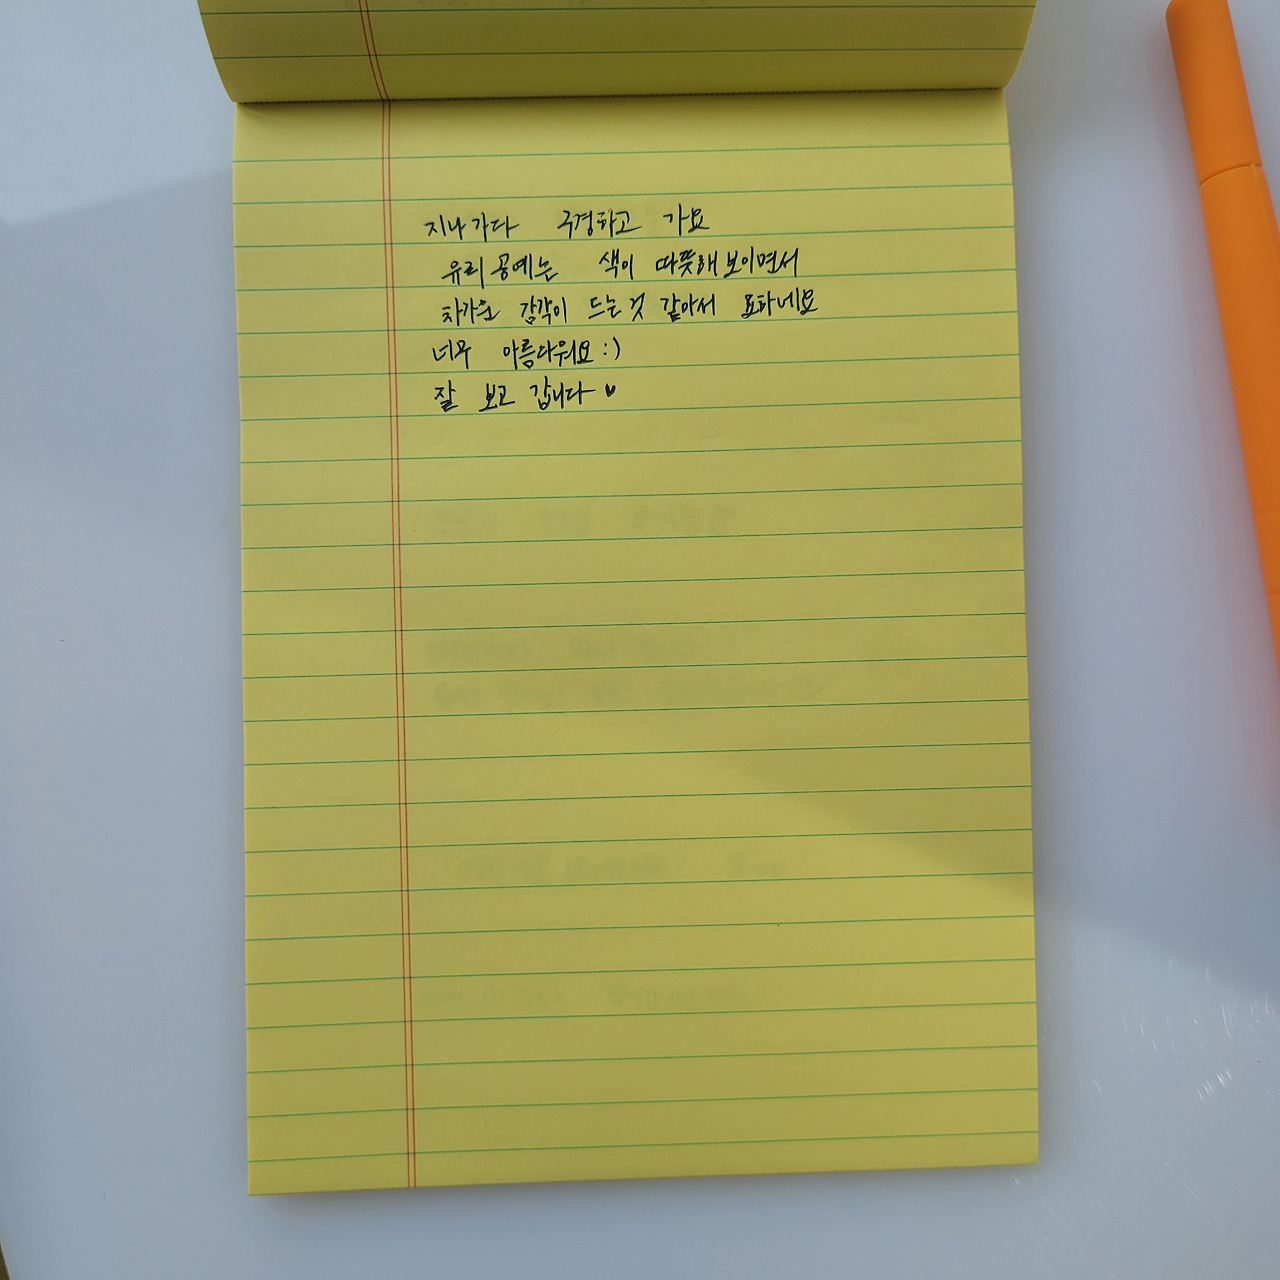 지나가다 구경하고 가요
유리공예는 색이 따뜻해보이면서
차가운 감각이 드는것 같아서 묘하네요
너무 아름다워요 :)
잘 보고 갑니다 ♥